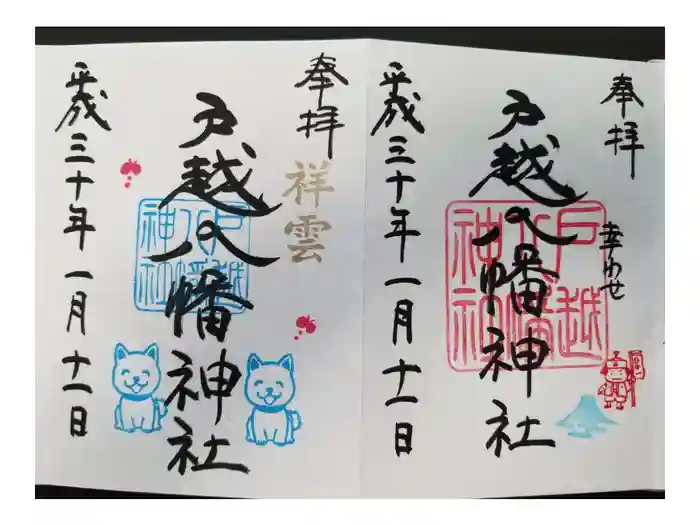 奉拝
幸わせ
戸越八幡神社
戸越八幡神社
平成三十年一月十一日
奉拝
祥雲
戸越八幡神社
戸越八幡神社
平成三十年一月十一日